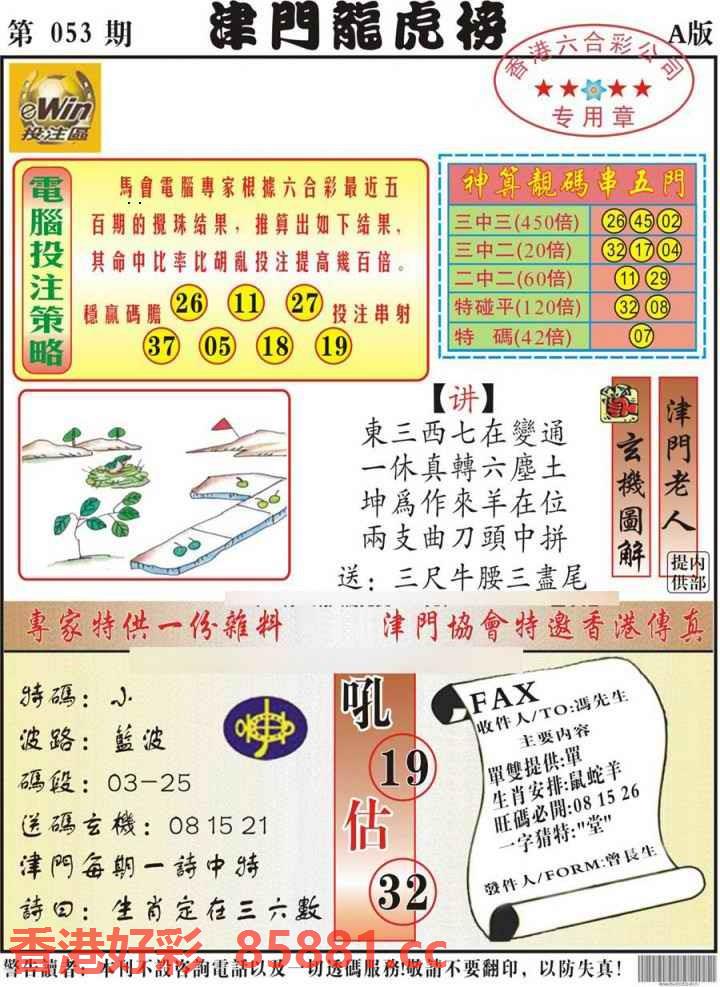 第 053 期
津門龍虎榜
A版
香港六合彩公司
★★★★
专用章
eWin
投注區
電腦投注策略
馬會電腦專家根據六合彩最近五
百期的攪珠结果，推算出如下结果，
其命中比率比胡亂投注提高幾百倍。
穩贏碼膽 26 11 27 投注串射
37 05 18 19
神算靚碼串五門
三中三(450倍) 26 45 02
三中二(20倍) 32 17 04
二中二(60倍) 11 29
特碰平(120倍) 32 08
特 碼(42倍) 07
【讲】
東三西七在變通
一休真轉六塵土
坤爲作來羊在位
兩支曲刀頭中拼
送：三尺牛腰三盡尾
玄機圖解
津門老人
内部提供
專家特供一份雜料
津門協會特邀香港傳真
特碼：小
波路：藍波
碼段：03-25
送碼玄機：08 15 21
津門每期一詩中特
詩曰：生肖定在三六數
吼
19
估
32
FAX
收件人/TO:馮先生
主要内容
單雙提供:單
生肖安排:鼠蛇羊
旺碼必開:08 15 26
一字猜特:"堂"
發件人/FORM:曾長生
香港好彩 85881.cc
警告讀者：本刊不設咨詢電話以及一切透碼服務!敬請不要翻印，以防失真!